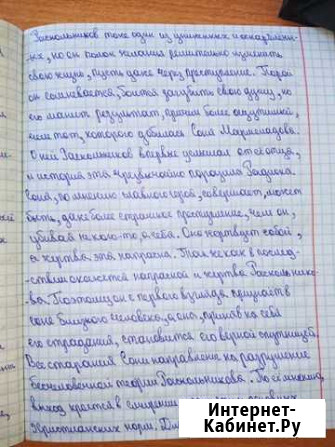 Раскольников тоже один из униженных и оскорбленн-
ых, но он полон желания решительно изменить
свою жизнь, пусть даже через преступление. Порой
он сомневается, боится загубить свою душу, но
его манит результат, причем более ощутимый,
чем тот, которого добилась Соня Мармеладова.
О ней Раскольников впервые услышал от её отца,
и история эта чрезвычайно поразила Родиона.
Соня, по мнению главного героя, совершает, может
быть, даже более страшное преступление, чем он,
убивая не кого-то, а себя. Она жертвует собой,
и жертва эта напрасна. Так же как в послед-
ствии окажется напрасной и жертва Раскольнико-
ва. Поэтому он с первого взгляда признаёт в
Соне близкого человека, а она, приняв на себя
его страдания, становится его верной спутницей.
Все старания Сони направлены на разрушение
бесчеловечной теории Раскольникова. По её мнению,
выход кроется в смирении
христианских норм.
Интернет-
Кабинет.РФ